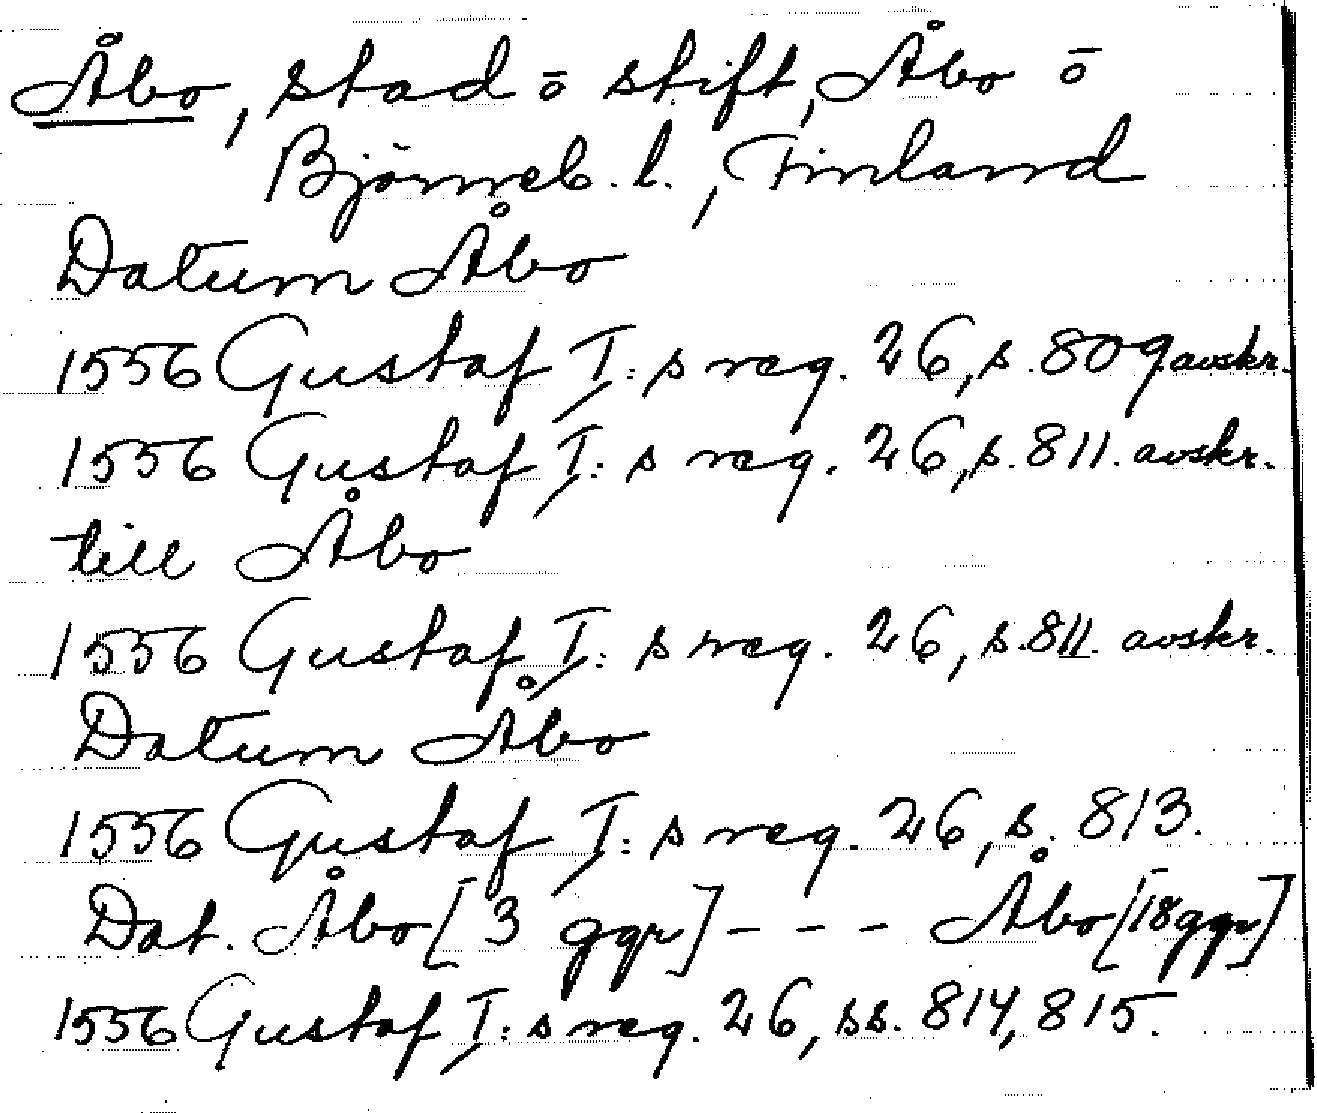 Åbo, stad ō stift, Åbo ō
Björneb. l., Finland
Datum Åbo
1556 Gustaf I:s reg. 26, s. 809 avskr.
1556 Gustaf I:s reg. 26, s. 811. avskr.
till Åbo
1556 Gustaf I:s reg. 26, s. 811. avskr.
Datum Åbo
1556 Gustaf I:s reg. 26, s. 813.
Dat. Åbo [3 ggr] - - - Åbo [18 ggr]
1556 Gustaf I:s reg. 26, ss. 814, 815.